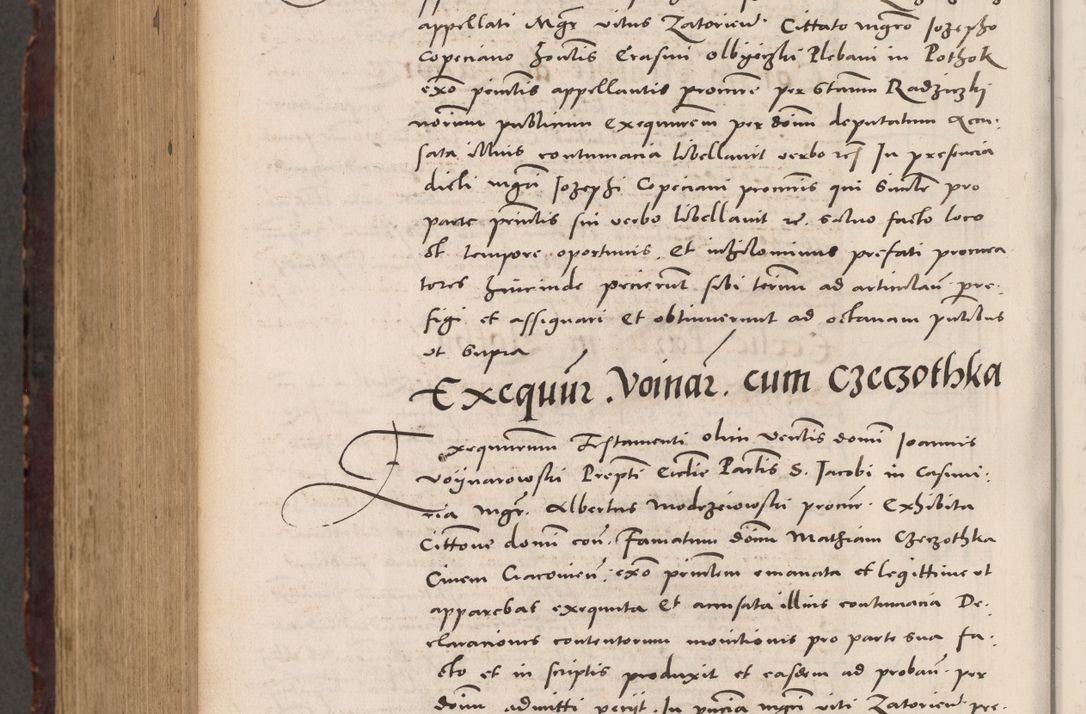 appellati Mgr vitus Zatorien. Cittato mgro Jozepho
Copeciano honestis Erasmi olbyeczki Plebani in Pothok
exo pcinctis appellantis procure per stanm Radziczkj
norium publicum Exequurem per domi deputatum Accu-
sata illius contumacia libellavit verbo rej In presencia
dicti mgri Jozephi Copeciani procuris qui similr pro
parte princtis sui verbo libellavit re. salvo facto loco
et tempore oportunis. Et nihilominus prefati procura
tores hincinde pecierunt sibi terim ad articulan pre-
figi et assignari Et obtinuerunt ad octavam putibus
ut supra
Exequur. Voinar. cum Czeczothka
Exequurum Testamenti olim venlis domi Joannis
voynarowski Prepti Ecclie Parlis S. Jacobi in Casimi-
ria mgr. Albertus modrzeiowski procur. Exhibita
Cittone domi con. Famatum domi Mathiam Czeczothka
Civem Cracovien. exo princtem emanata et legittime ut
apparebat exequuta Et accusata illius contumacia De-
claraciones contentorum monictionis pro parte sua fa-
cto et in scriptis produxit et easdem ad proban. per
domi admitti periit. In pncia mgri viti Zatorien. pre-